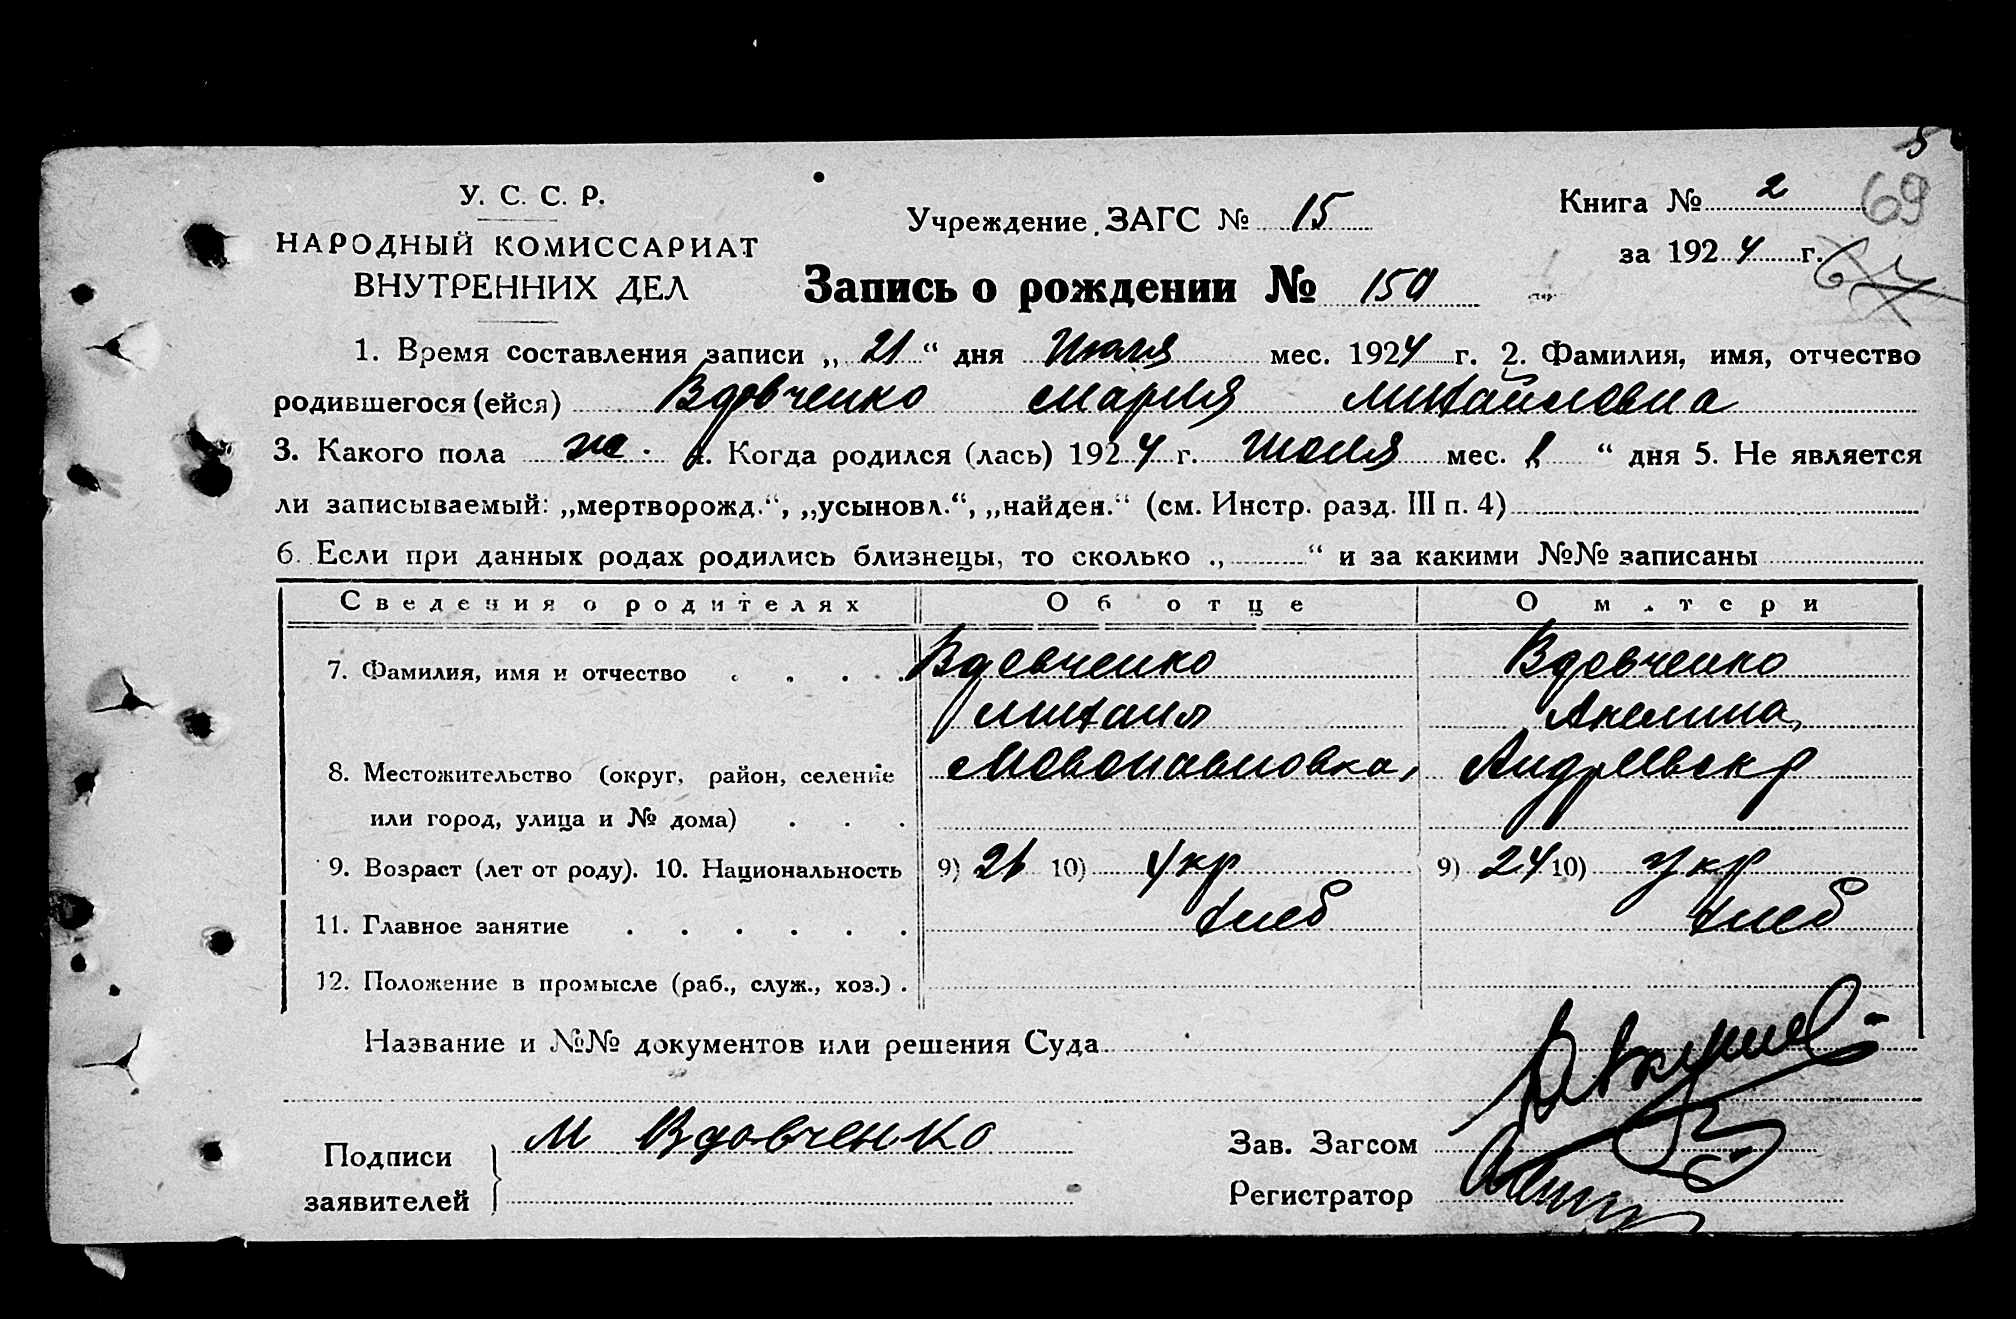 5
У. С. С. Р.
НАРОДНЫЙ КОМИССАРИАТ
ВНУТРЕННИХ ДЕЛ
Учреждение ЗАГС № 15
Книга № 2
69
за 1924 г.
67
Запись о рождении № 150
1. Время составления записи „21“ дня Июля мес. 1924 г. 2. Фамилия, имя, отчество
родившегося (ейся) Вдовченко Мария Михайловна
3. Какого пола ж. 4. Когда родился (лась) 1924 г. июля мес. „ “ дня 5. Не является
ли записываемый: „мертворожд.“, „усыновл.“, „найден.“ (см. Инстр. разд. III п. 4)
6. Если при данных родах родились близнецы, то сколько „ “ и за какими №№ записаны
Сведения о родителях Об отце О матери
7. Фамилия, имя и отчество Вдовченко Вдовченко
Михаил Акелина
8. Местожительство (округ, район, селение Новопавловка, Андреевск р
или город, улица и № дома)
9. Возраст (лет от роду). 10. Национальность 9) 26 10) Укр 9) 24 10) Укр
11. Главное занятие хлеб хлеб
12. Положение в промысле (раб., служ., хоз.)
Название и №№ документов или решения Суда
Подписи
заявителей
М Вдовченко
Зав. Загсом
Регистратор